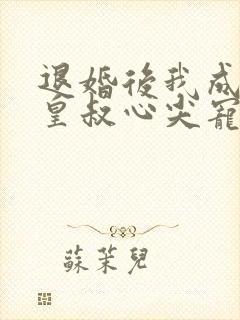 退婚後我成
皇叔心尖寵
蘇茉兒